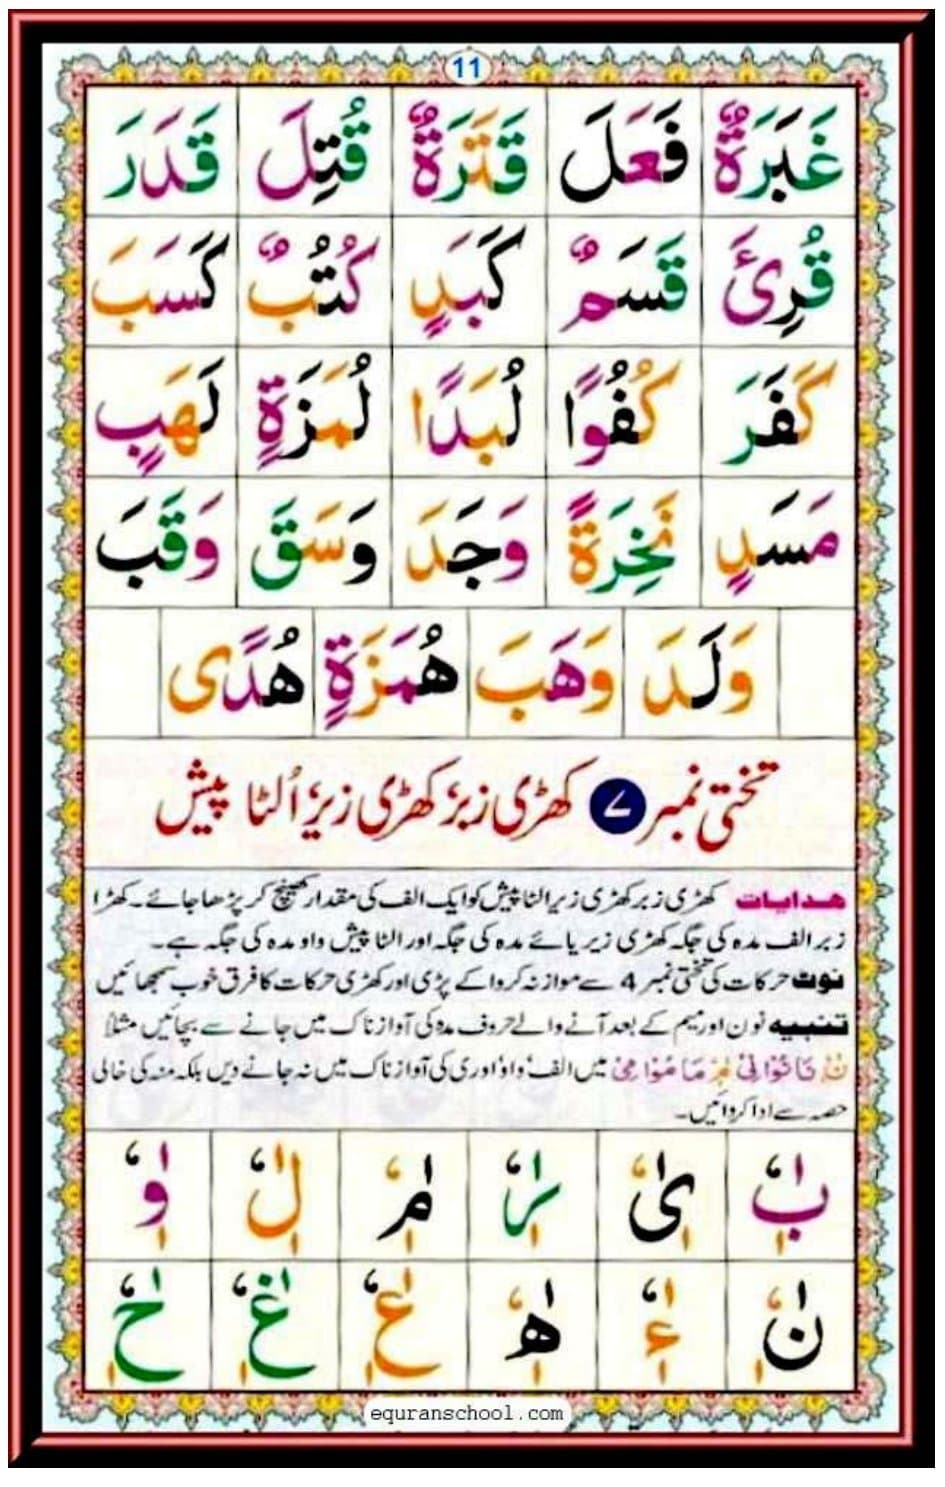 11
غَبَرَةٌ فَعَلَ قَتَرَةٌ قُتِلَ قَدَرَ
قُرِئَ قَسَمٌ كَبَدٍ كُتُبٌ كَسَبَ
كَفَرَ كُفُوًا لُبَدًا لُمَزَةٍ لَهَبٍ
مَسَدٍ نَخِرَةً وَجَدَ وَسَقَ وَقَبَ
وَلَدَ وَهَبَ هُمَزَةٍ هُدًى
تختی نمبر ۷ کھڑی زبر، کھڑی زیر، اُلٹا پیش
ھدایات کھڑی زبر کھڑی زیر الٹا پیش کو ایک الف کی مقدار کھینچ کر پڑھا جائے۔ کھڑا
زبر الف مدہ کی جگہ کھڑی زیر یائے مدہ کی جگہ اور الٹا پیش واو مدہ کی جگہ ہے۔
نوٹ حرکات کی تختی نمبر 4 سے موازنہ کروا کے پڑی اور کھڑی حرکات کا فرق خوب سمجھائیں
تنبیہ نون اور میم کے بعد آنے والے حروف مدہ کی آواز ناک میں جانے سے بچائیں مثلاً
نَا نُوْا نِیْ مَا مُوْا مِیْ میں الف، واؤ اور ی کی آواز ناک میں نہ جانے دیں بلکہ منہ کی خالی
حصہ سے ادا کروائیں۔
بٰ یٰ رٰ مٰ لٰ وٰ
نٰ ءٰ ھٰ عٰ غٰ حٰ
equranschool.com